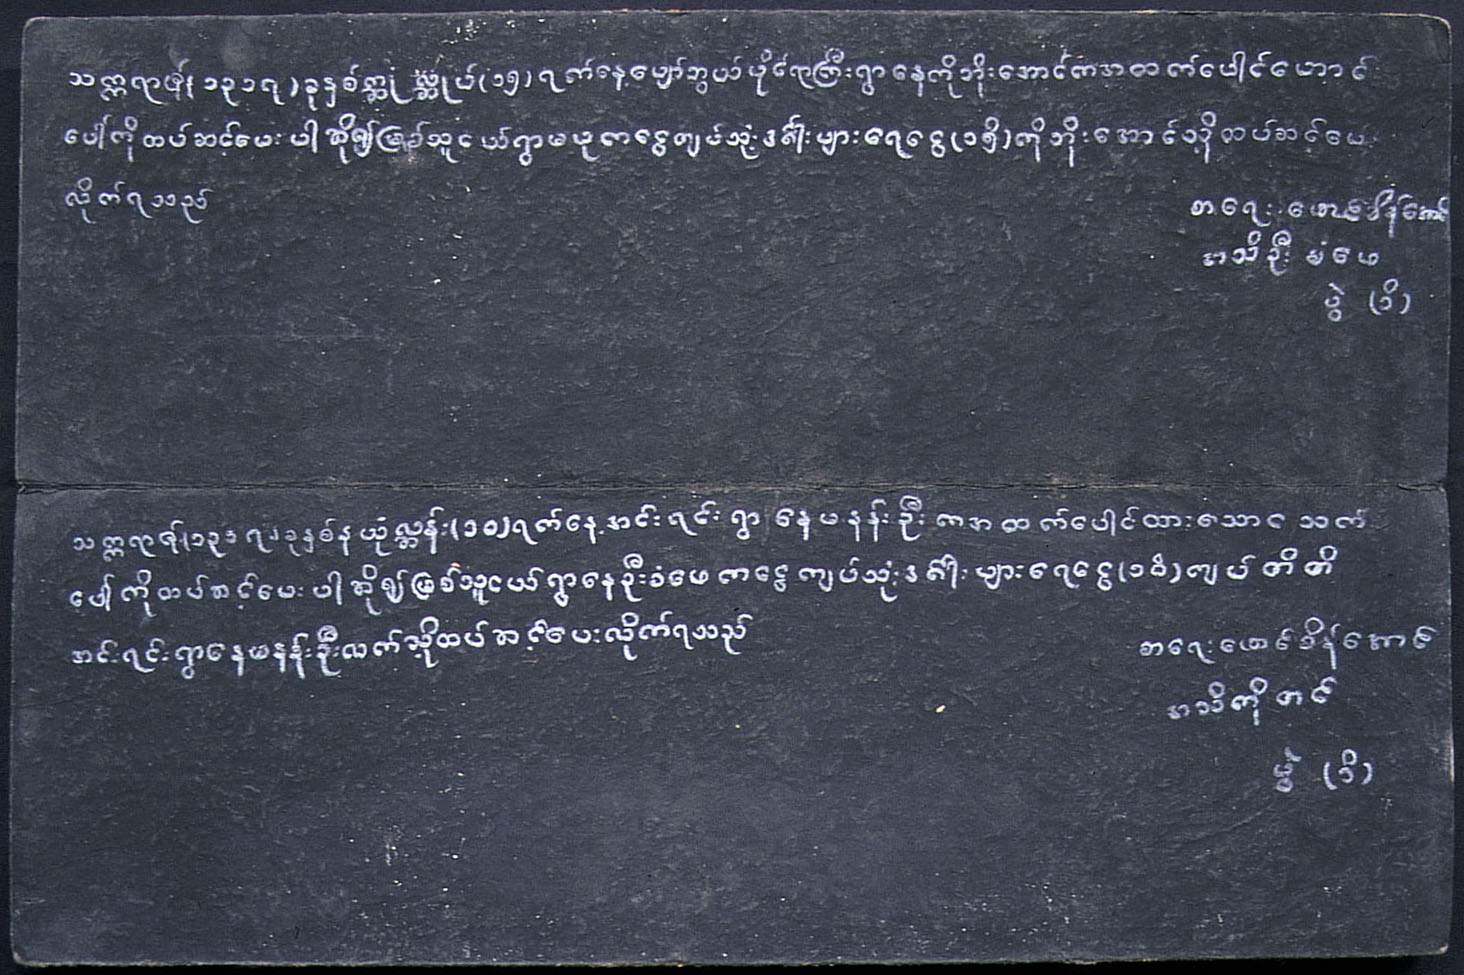 သက္ကရာဇ်(၁၃၁၇)ခုနှစ် ရက်နေ့ ရွာနေကိုဘိုးအောင်ကအထက်ပေါင်ဟောင်း
ပေါ်ကိုထပ်ဆင့်ပေးပါဆို၍ဖြစ်သူငယ်ရွာမယုကငွေကျပ်သုံးဒင်္ဂါးများရေငွေ(၁၅ိ)ကိုဘိုးအောင်သို့ထပ်ဆင့်ပေး
လိုက်ရသည်
စာရေးမောင်စိန်အောင်
အသိဦးခံဖေ
ပွဲ (၁ိ)
သက္ကရာဇ်(၁၃၁၇)ခုနှစ်နယုံလ္ဆန်း(၁၀)ရက်နေ့အင်းရင်းရွာနေမနန်းဦးကအထက်ပေါင်ထားသောငသက်
ပေါ်ကိုထပ်ဆင့်ပေးပါဆို၍ဖြစ်သူငယ်ရွာနေဦးခံဖေကငွေကျပ်သုံးဒင်္ဂါးများရေငွေ ကျပ်တိတိ
အင်းရင်းရွာနေမနန်းဦးလက်သို့ထပ်ဆင့်ပေးလိုက်ရသည်
စာရေးမောင်စိန်အောင်
အသိကိုတင်
ပွဲ (၁ိ)